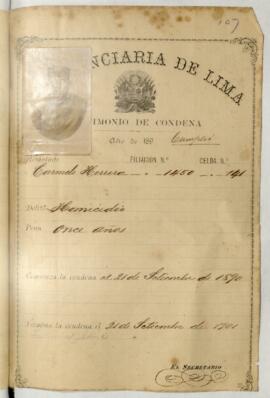 107
NCIARIA DE LIMA
TIMONIO DE CONDENA
Año de 189 Cumplió
Rematado FILIACION. N.º CELDA. N.º
Carmelo Herrera 1450 141
Delito Homicidio
Pena Once años
Comienza la condena el 21 de Setiembre de 1890
Termina la condena el 21 de Setiembre de 1901
EL SECRETARIO